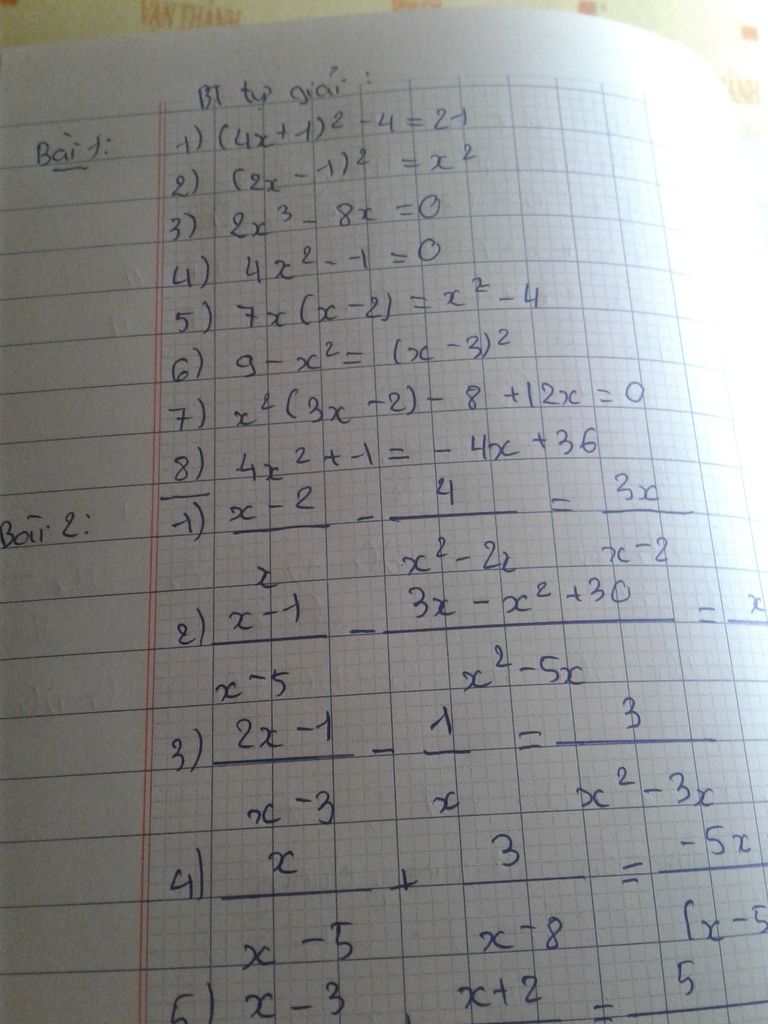 VẠN THÀNH
BT tự giải :
Bài 1: 1) (4x+1)² - 4 = 21
2) (2x - 1)² = x²
3) 2x³ - 8x = 0
4) 4x² - 1 = 0
5) 7x(x-2) = x² - 4
6) 9 - x² = (x - 3)²
7) x²(3x - 2) - 8 + 12x = 0
8) 4x² + 1 = - 4x + 36
Bài 2: 1) x - 2 / x - 4 / x² - 2x = 3x / x - 2
2) x - 1 / x - 5 - 3x - x² + 30 / x² - 5x = x
3) 2x - 1 / x - 3 - 1 / x = 3 / x² - 3x
4) x / x - 5 + 3 / x - 8 = -5x / (x - 5
5) x - 3 x + 2 = 5